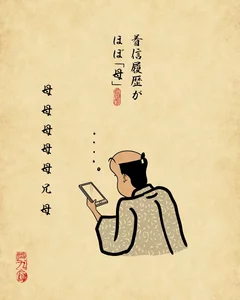 着信履歴が
ほぼ「母」
母母母母母兄母